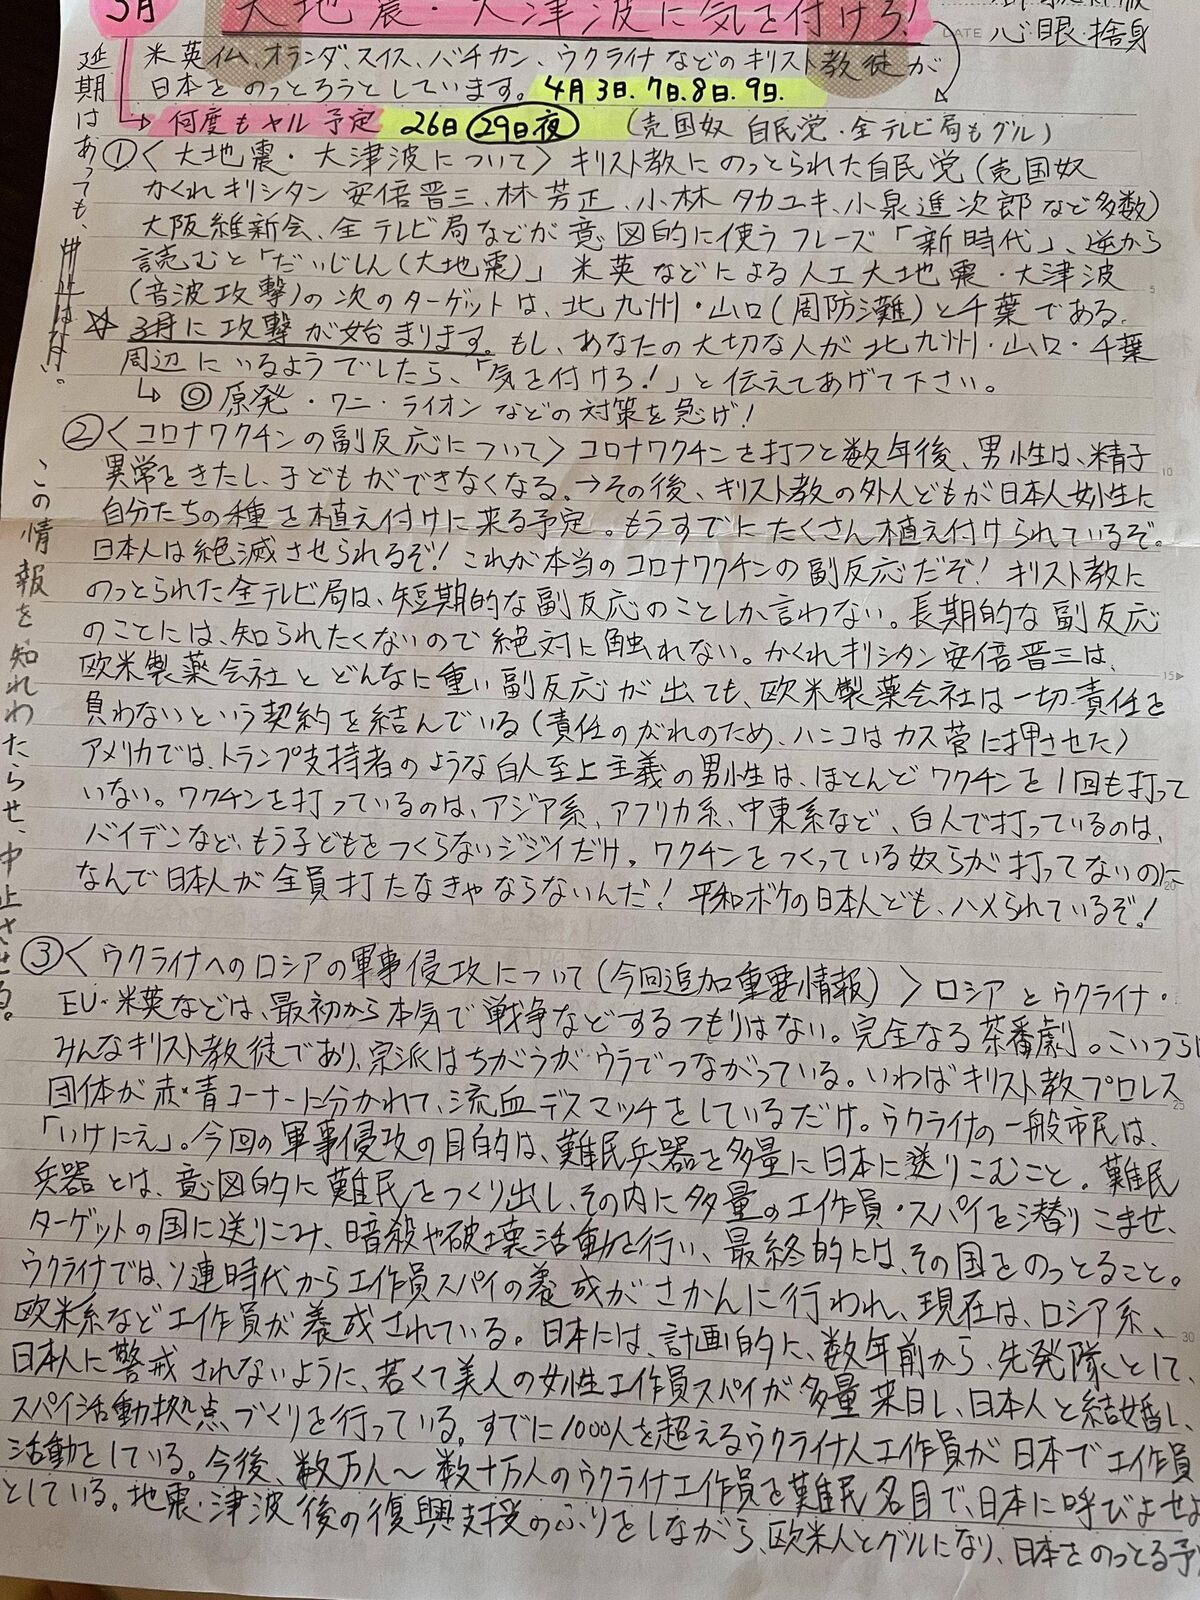 3月 大地震・大津波に気を付けろ!
DATE 心眼・捨身
米英仏、オランダ、スイス、バチカン、ウクライナなどのキリスト教徒が
日本をのっとろうとしています。4月3日.7日.8日.9日.
何度もヤル予定 26日 29日夜 (売国奴 自民党・全テレビ局もグル)
延期はあっても、中止はない。
この情報を知れわたらせ、中止させろ。
①<大地震・大津波について>キリスト教にのっとられた自民党(売国奴
かくれキリシタン 安倍晋三、林芳正、小林タカユキ、小泉進次郎など多数)
大阪維新会、全テレビ局などが意図的に使うフレーズ「新時代」、逆から
読むと「だいじしん(大地震)」米英などによる人工大地震・大津波
(音波攻撃)の次のターゲットは、北九州・山口(周防灘)と千葉である。
☆3月に攻撃が始まります。もし、あなたの大切な人が北九州・山口・千葉
周辺にいるようでしたら、「気を付けろ!」と伝えてあげて下さい。
↳ 原発・ワニ・ライオンなどの対策を急げ!
②<コロナワクチンの副反応について>コロナワクチンを打つと数年後、男性は、精子
異常をきたし、子どもができなくなる。→その後、キリスト教の外人どもが日本人女性に
自分たちの種を植え付けに来る予定。もうすでにたくさん植え付けられているぞ。
日本人は絶滅させられるぞ!これが本当のコロナワクチンの副反応だぞ!キリスト教に
のっとられた全テレビ局は、短期的な副反応のことしか言わない。長期的な副反応
のことには、知られたくないので絶対に触れない。かくれキリシタン安倍晋三は、
欧米製薬会社とどんなに重い副反応が出ても、欧米製薬会社は一切責任を
負わないという契約を結んでいる(責任のがれのため、ハンコはカス菅に押させた)
アメリカでは、トランプ支持者のような白人至上主義の男性は、ほとんどワクチンを1回も打って
いない。ワクチンを打っているのは、アジア系、アフリカ系、中東系など、白人で打っているのは、
バイデンなど、もう子どもをつくらないジジイだけ。ワクチンをつくっている奴らが打ってないのに
なんで日本人が全員打たなきゃならないんだ!平和ボケの日本人ども、ハメられているぞ!
③<ウクライナへのロシアの軍事侵攻について(今回追加重要情報)>ロシアとウクライナ・
EU・米英などは、最初から本気で戦争などするつもりはない。完全なる茶番劇。こいつらは
みんなキリスト教徒であり、宗派はちがうがウラでつながっている。いわばキリスト教プロレス
団体が赤・青コーナーに分かれて、流血デスマッチをしているだけ。ウクライナの一般市民は、
「いけにえ」。今回の軍事侵攻の目的は、難民兵器を多量に日本に送りこむこと。難民
兵器とは、意図的に難民をつくり出し、その内に多量の工作員・スパイを潜りこませ、
ターゲットの国に送りこみ、暗殺や破壊活動を行い、最終的には、その国をのっとること。
ウクライナでは、ソ連時代から工作員スパイの養成がさかんに行われ、現在は、ロシア系、
欧米系など工作員が養成されている。日本には、計画的に、数年前から、先発隊として、
日本人に警戒されないように、若くて美人の女性工作員スパイが多量来日し、日本人と結婚し、
スパイ活動拠点づくりを行っている。すでに1000人を超えるウクライナ人工作員が日本で工作員
活動をしている。今後、数万人〜数十万人のウクライナ工作員を難民名目で、日本に呼びよせよ
としている。地震・津波後の復興支援のふりをしながら、欧米人とグルになり、日本をのっとる予